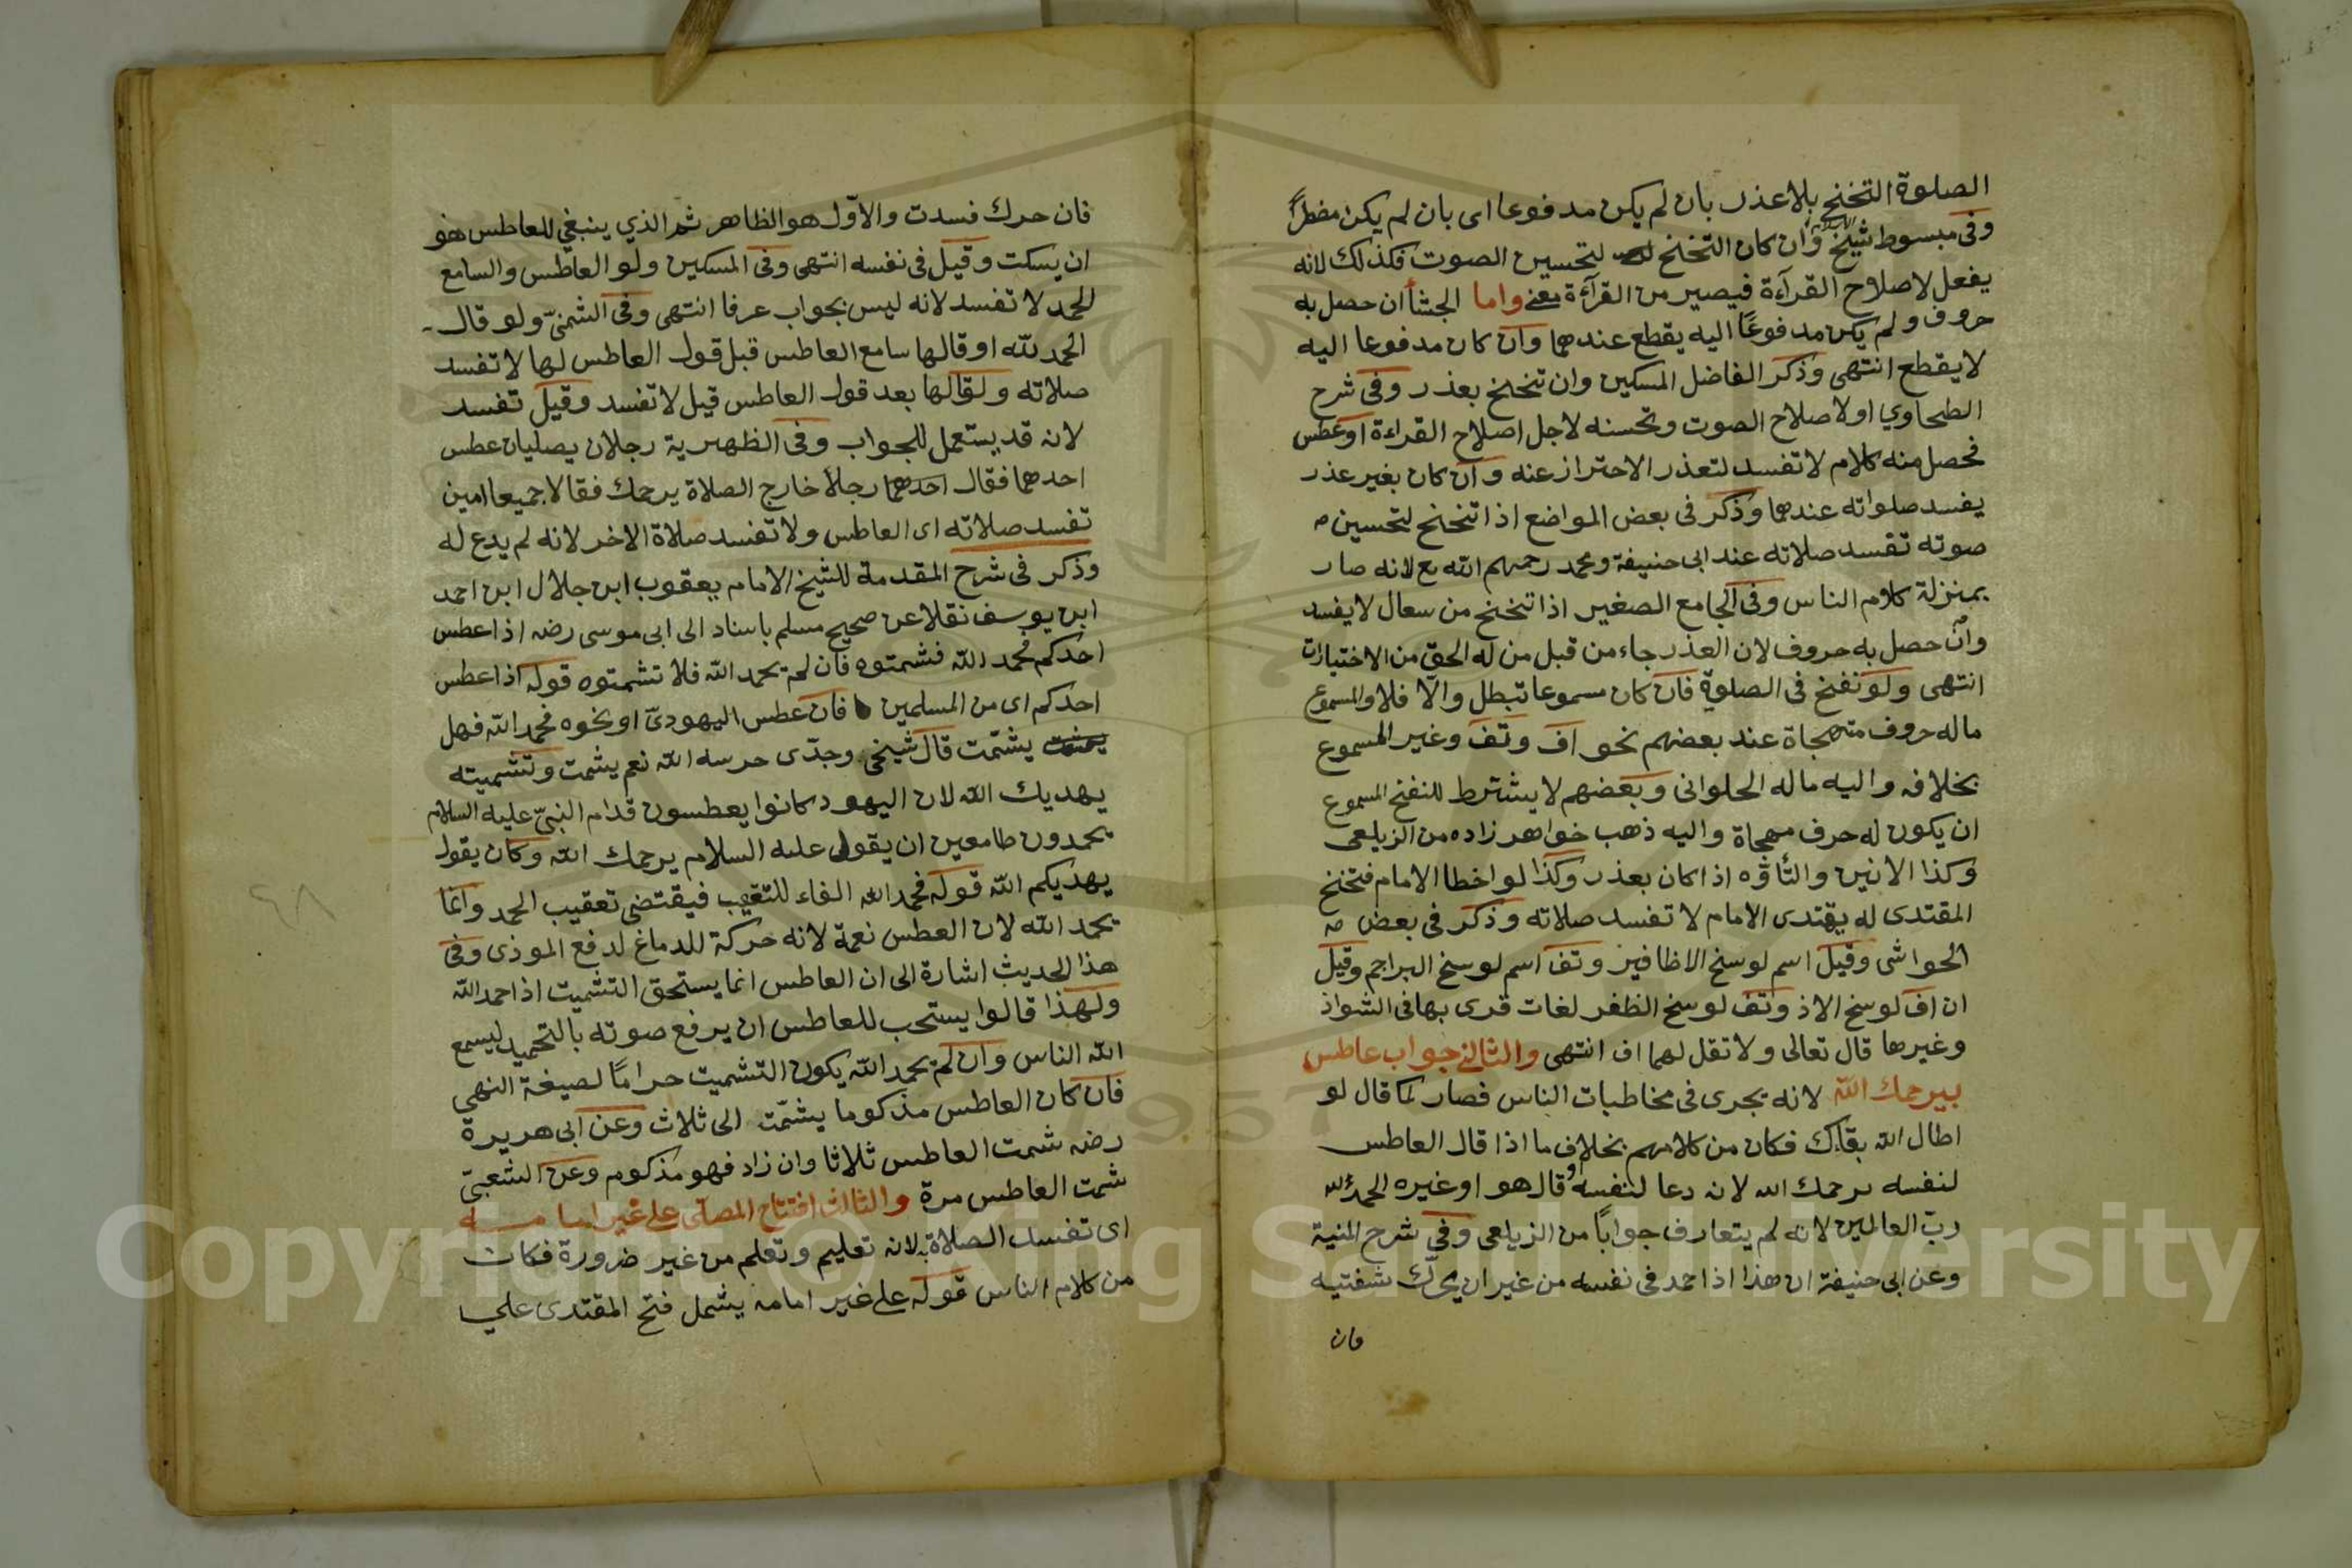 الصلوة التخنح بلا عذر بان لم يكن مدفوعا اى بان لم يكن مضطرًا
وفى مبسوط شيخ الاسلام وان كان التخنح لتحسين الصوت فكذلك لانه
يفعل لاصلاح القرآءة فيصير من القرآءة معنى واما الجشأ ان حصل به
حروف ولم يكن مدفوعًا اليه يقطع عندهما وان كان مدفوعا اليه
لا يقطع انتهى وذكر الفاضل المسكين وان تنحنح بعذر وفى شرح
الطحاوي او لاصلاح الصوت وتحسنه لاجل اصلاح القراءة او عطس
فحصل منه كلام لا تفسد لتعذر الاحتراز عنه وان كان بغير عذر
يفسد صلواته عندهما وذكر فى بعض المواضع اذا تنحنح لتحسين
صوته تفسد صلاته عند ابى حنيفة ومحمد رحمهم الله تع لانه صار
بمنزلة كلام الناس وفى الجامع الصغير اذا تنحنح من سعال لا يفسد
وان حصل به حروف لان العذر جاء من قبل من له الحق من الاختيارات
انتهى ولو نفخ فى الصلوة فان كان مسموعا تبطل والّا فلا والمسموع
ما له حروف متهجاة عند بعضهم نحو اف وتف وغير المسموع
بخلافه واليه ماله الحلوانى وبعضهم لا يشترط للنفخ المسموع
ان يكون له حرف مهجاة واليه ذهب خواهر زاده من الزيلعى
وكذا الانين والتأوّه اذا كان بعذر وكذا لو اخطا الامام فتخنح
المقتدى له يهتدى الامام لا تفسد صلاته وذكر فى بعض
الحواشى وقيل اسم لوسخ الاظافير وتف اسم لوسخ البراجم وقيل
ان اف لوسخ الاذ وتف لوسخ الظفر لغات قرى بها فى الشواذ
وغيرها قال تعالى ولا تقل لهما اف انتهى والثانى جواب عاطس
بيرحمك الله لانه يجرى فى مخاطبات الناس فصار كما قال لو
اطال الله بقاك فكان من كلامهم بخلاف ما اذا قال العاطس
لنفسه يرحمك الله لان دعا لنفسه وقال هو او غيره الحمد لله
ربّ العالمين لانه لم يتعارف جوابًا من الزيلعى وفى شرح المنية
وعن ابى حنيفة ان هذا اذا حمد فى نفسه من غير ان يحرّك شفتيه
فان
فان حرك فسدت والاوّل هو الظاهر ثم الذي ينبغي للعاطس هو
ان يسكت وقيل فى نفسه انتهى وفى المسكين ولو العاطس والسامع
الحمد لا تفسد لانه ليس بجواب عرفا انتهى وفى الشمنىّ ولو قال
الحمد لله او قالها سامع العاطس قبل قول العاطس لها لا تفسد
صلاته ولو قالها بعد قول العاطس قيل لا تفسد وقيل تفسد
لانه قد يستعمل للجواب وفى الظهيرية رجلان يصليان عطس
احدهما فقال احدهما رجلا خارج الصلاة يرحمك فقالا جميعا امين
تفسد صلاته اى العاطس ولا تفسد صلاة الاخر لانه لم يدع له
وذكر فى شرح المقدمة للشيخ الامام يعقوب ابن جلال ابن احمد
ابن يوسف نقلا عن صحيح مسلم باسناد الى ابى موسى رضه اذا عطس
احدكم فحمد الله فشمتوه فان لم يحمد الله فلا تشمتوه قوله اذا عطس
احدكم اى من المسلمين فان عطس اليهودىّ او نحوه فحمد الله فهل
يشمّت قال شيخى وجدّى حرسه الله نعم يشمت وتشميته
يهديك الله لان اليهود كانوا يعطسون قدام النبىّ عليه السلام
يحمدون طامعين ان يقول عليه السلام يرحمك الله وكان يقول
يهديكم الله قوله فحمد الله الفاء للتعقيب فيقتضى تعقيب الحمد وانما
يحمد الله لان العطس نعمة لانه حركة للدماغ لدفع الموذى وفى
هذا الحديث اشارة الى ان العاطس انما يستحق التشميت اذا حمد الله
ولهذا قالوا يستحب للعاطس ان يرفع صوته بالتحميد ليسمع
الله الناس وان لم يحمد الله يكون التشميت حرامًا لصيغة النهي
فان كان العاطس مذكوما يشمّت الى ثلاث وعن ابى هريرة
رضه شمت العاطس ثلاثا وان زاد فهو مذكوم وعن الشعبىّ
شمت العاطس مرة والثالث افتتاح المصلّى على غير امامه
اى تفسد الصلاة لانه تعليم وتعلم من غير ضرورة فكان
من كلام الناس قوله على غير امامه يشمل فتح المقتدى على
٤٨
Copyright © King Saud University
1957